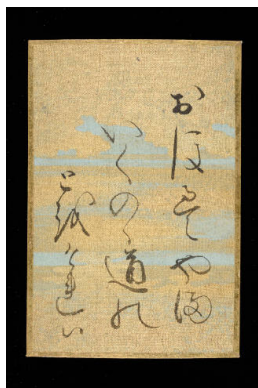 おほえやま
いくのゝ道の
とをけれは